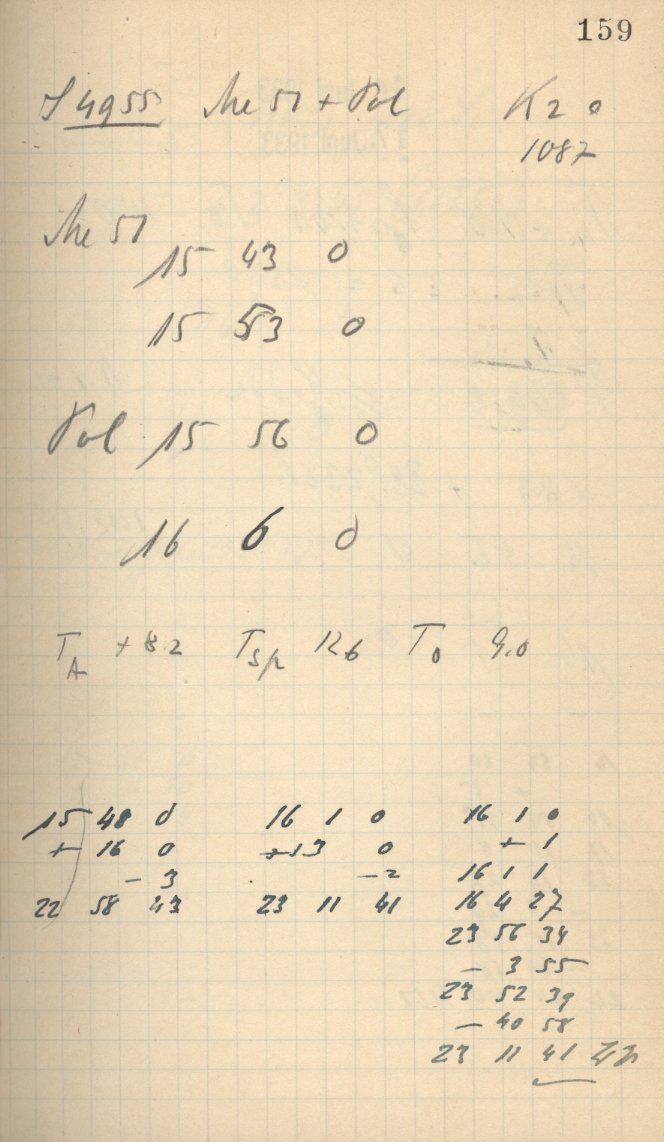 159
S 4955 Me 51 + Pol K 2 0
1087
Me 51
15 43 0
15 53 0
Pol 15 56 0
16 6 0
T_A + 8.2 T_Sp 12.6 T_0 9.0
15 48 0
+ 16 0
- 3
22 58 43
16 1 0
+ 13 0
- 2
23 11 41
16 1 0
+ 1
16 1 1
16 4 27
23 56 34
- 3 55
23 52 39
- 40 58
23 11 41